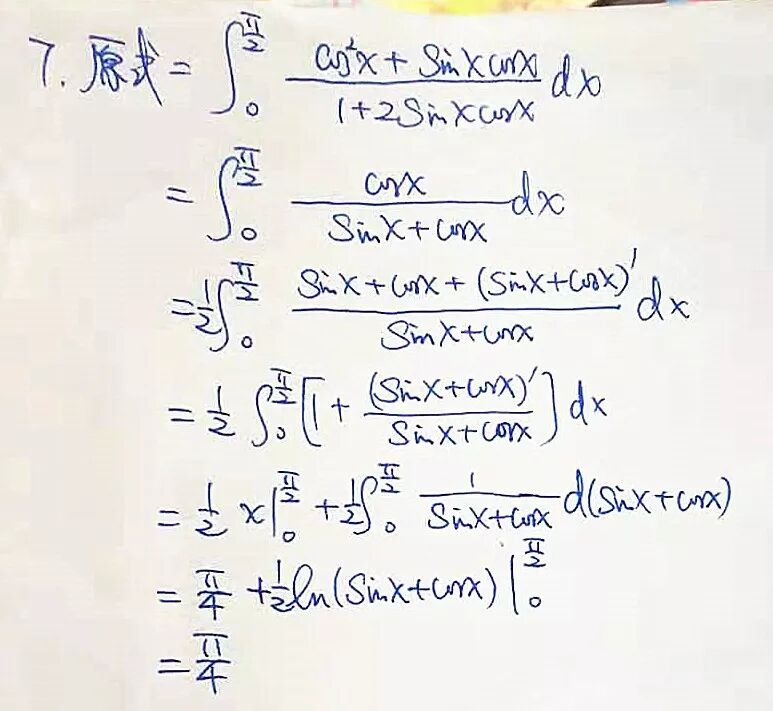 7. 原式 = ∫₀^(π/2) (cos²x + sinxcosx)/(1+2sinxcosx) dx
= ∫₀^(π/2) cosx/(sinx+cosx) dx
= 1/2 ∫₀^(π/2) (sinx+cosx+(sinx+cosx)′)/(sinx+cosx) dx
= 1/2 ∫₀^(π/2) [1 + (sinx+cosx)′/(sinx+cosx)] dx
= 1/2 x|₀^(π/2) + 1/2 ∫₀^(π/2) 1/(sinx+cosx) d(sinx+cosx)
= π/4 + 1/2 ln(sinx+cosx)|₀^(π/2)
= π/4